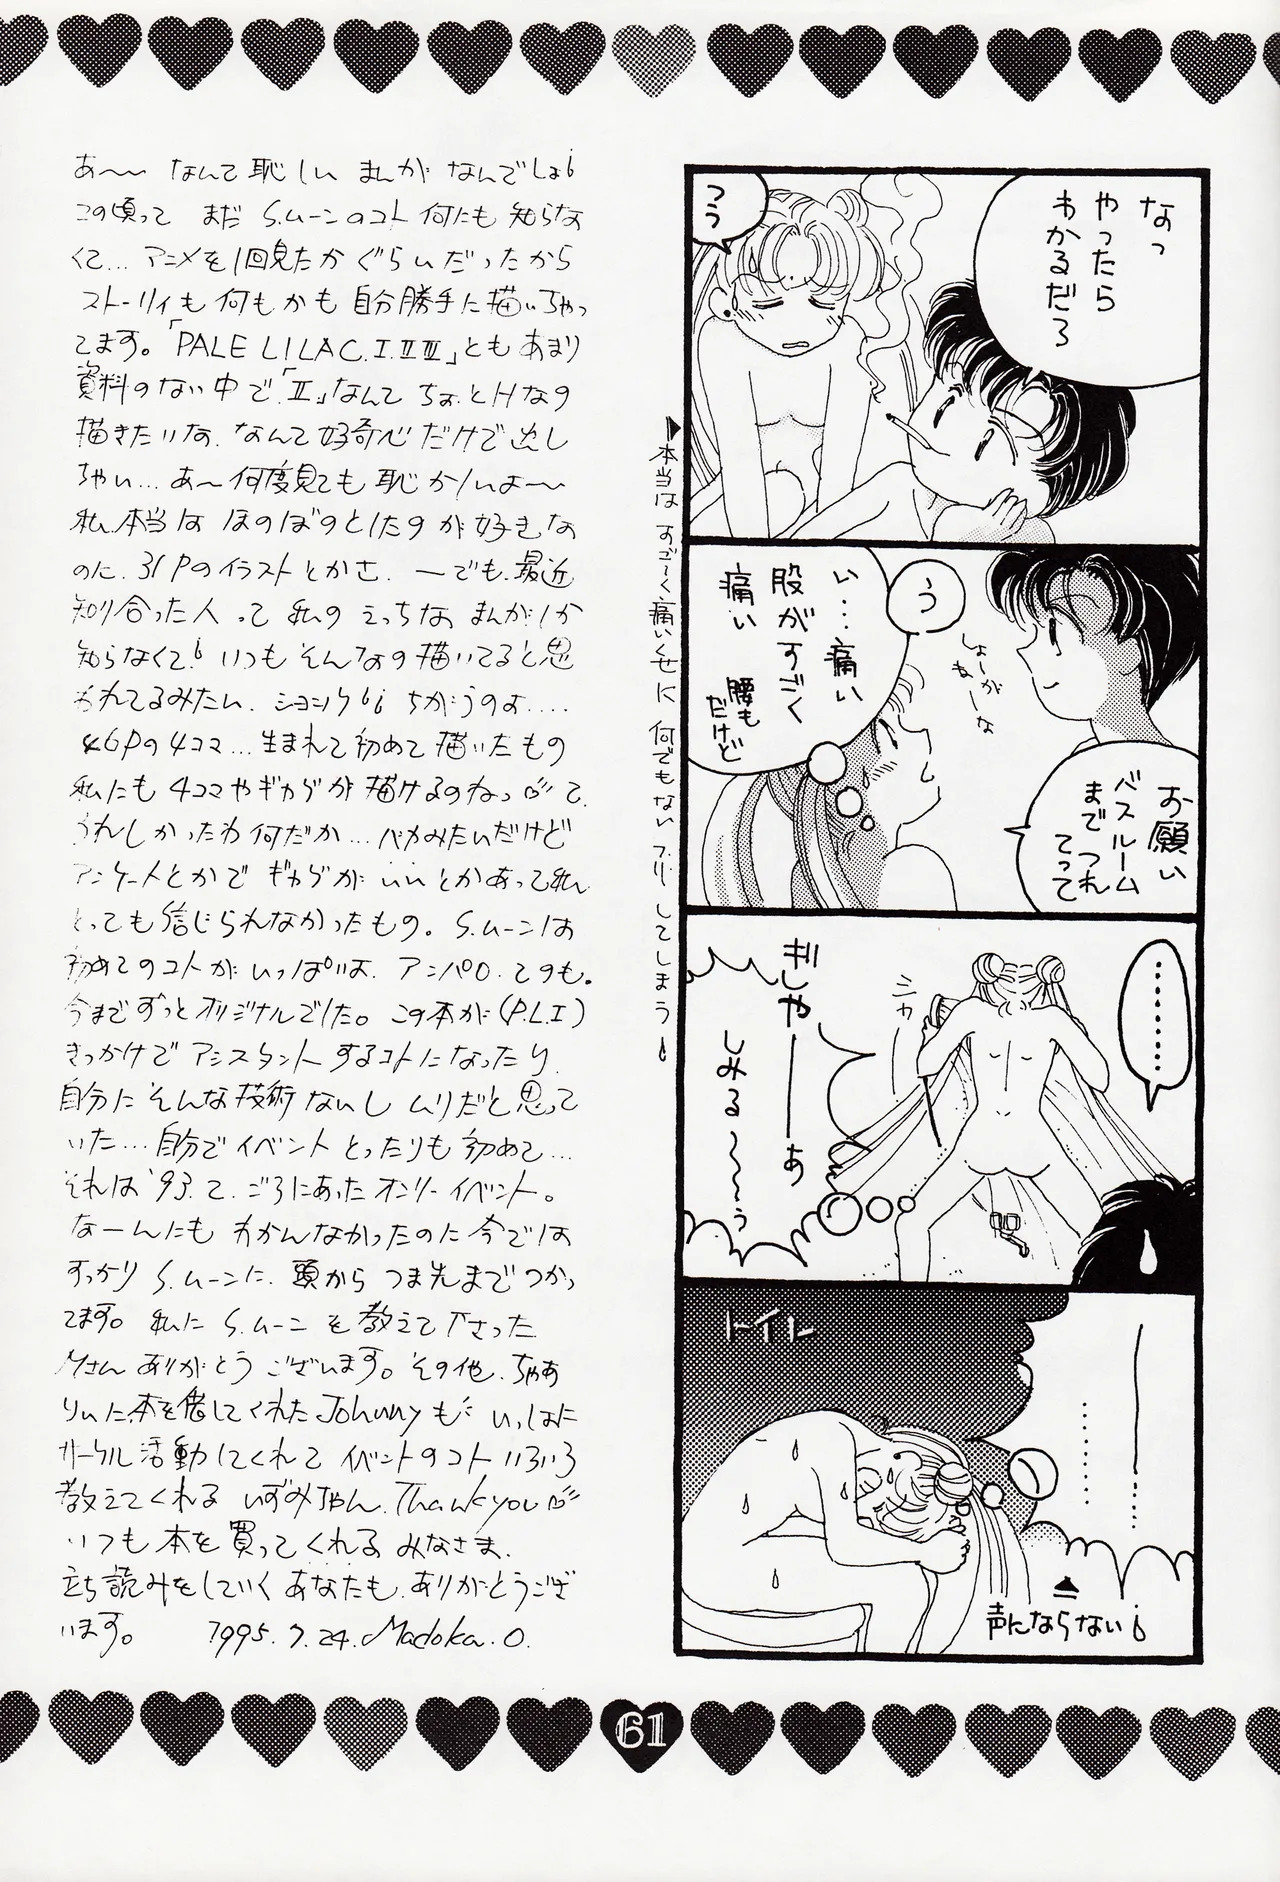 あ〜〜 なんて恥しい まんが なんでしょ
この頃って まだ S.ムーンのコト 何にも 知らな
くて… アニメを1回見たか ぐらいだったから
ストーリィも 何もかも 自分勝手に描いちゃっ
てます。「PALE LILAC. I. II III」ともあまり
資料のない中で「II」なんて ちょっとHなの
描きたいな、なんて好奇心だけで出し
ちゃい… あ〜何度見ても 恥かしいよ〜〜
私、本当は ほのぼのとしたのが好きな
のに、31Pのイラストとかさ、ーでも、最近
知り合った人って 私の えっちな まんがしか
知らなくて いつも そんなの描いてると思
われてるみたい、ショック ちがうのよ….
46Pの4コマ…生まれて初めて描いたもの
私にも 4コマやギャグが描けるのねっ て、
うれしかったわ何だか…バカみたいだけど
アンケートとかで ギャグが いいとかあって私、
とっても信じられなかったもの。S.ムーンは
初めてのコトがいっぱいよ、アンパロ、ての も。
今までずっとオリジナルでした。この本が(P.L.I)
きっかけで アシスタントするコトになったり、
自分に そんな技術ないし ムリだと思って
いた… 自分でイベント とったりも 初めて…
それは '93.て、ごろにあったオンリーイベント。
なーんにも わかんなかったのに今では
すっかり S.ムーンに、頭から つま先までつかっ
てます。 私に S.ムーン を教えて下さった
Mさん ありがとう ございます。その他、ちゃあ
りぃに、本を借してくれた Johnnyも いっしょに
サークル活動してくれて イベントのコト いろいろ
教えてくれる いずみちゃん、Thank you
いつも 本を買ってくれる みなさま、
立ち読みをしていく あなたも、ありがとうござ
います。 1995.7.24. Madoka.O.
なっ
やったら
わかるだろ
うう
▶本当は すご〜く痛いくせに 何でもない フリ してしまう
う
い…痛い
股がすごく
痛い
腰も
だけど
しょーが
ねーな
お願い
バスルーム
まで つれ
てって
………
シャカ
ぎしゃ――ぁ
しみる〜〜〜ぅ
トイレ
――……
………
声にならない
61